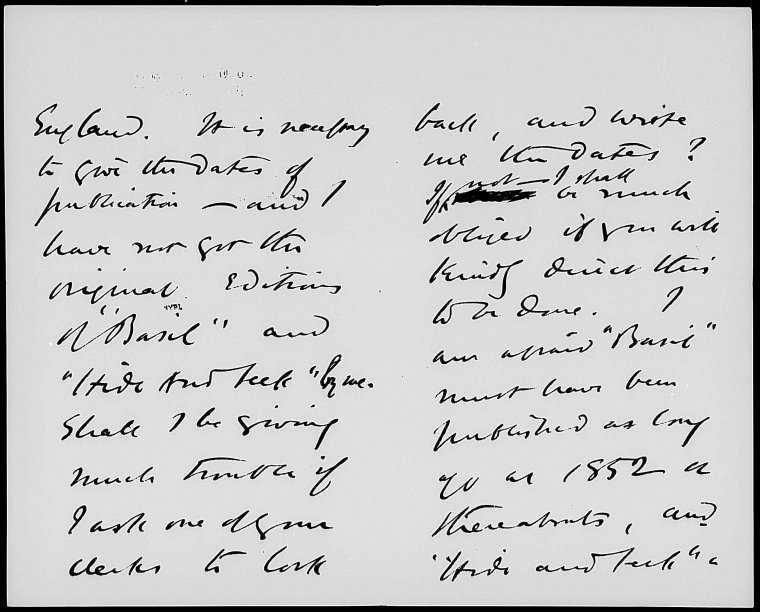 England. It is necessary
to give the dates of
publication — and I
have not got the
original Editions
of "Basil" and
"Hide And Seek" by me.
Shall I be giving
much trouble if
I ask one of your
clerks to look
back, and write
me the dates?
If not — I shall
be much
obliged if you will
kindly direct this
to be done. I
am afraid "Basil"
must have been
published as long
ago as 1852 or
thereabouts, and
"Hide and Seek" a